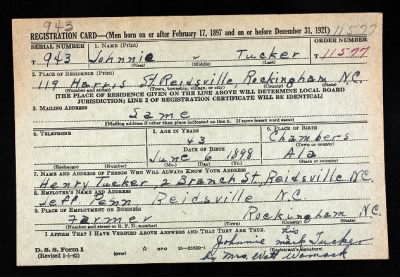 943
11577
REGISTRATION CARD—(Men born on or after February 17, 1897 and on or before December 31, 1921)
SERIAL NUMBER 1. NAME (Print) ORDER NUMBER
T 943 Johnnie - Tucker T 11577
(First) (Middle) (Last)
2. PLACE OF RESIDENCE (Print)
119 Harris St. Reidsville, Rockingham N.C.
(Number and street) (Town, township, village, or city) (County) (State)
[THE PLACE OF RESIDENCE GIVEN ON THE LINE ABOVE WILL DETERMINE LOCAL BOARD
JURISDICTION; LINE 2 OF REGISTRATION CERTIFICATE WILL BE IDENTICAL]
3. MAILING ADDRESS
Same
[Mailing address if other than place indicated on line 2. If same insert word same]
4. TELEPHONE 5. AGE IN YEARS 6. PLACE OF BIRTH
43 Chambers
DATE OF BIRTH (Town or county)
June 6 1898 Ala
(Exchange) (Number) (Mo.) (Day) (Yr.) (State or country)
7. NAME AND ADDRESS OF PERSON WHO WILL ALWAYS KNOW YOUR ADDRESS
Henry Tucker, 2 Branch St, Reidsville N.C.
8. EMPLOYER'S NAME AND ADDRESS
Jeff Penn Reidsville N.C.
9. PLACE OF EMPLOYMENT OR BUSINESS
Farmer Rockingham N.C.
(Number and street or R. F. D. number) (Town) (County) (State)
I AFFIRM THAT I HAVE VERIFIED ABOVE ANSWERS AND THAT THEY ARE TRUE.
his
Johnnie mark Tucker
D. S. S. Form 1 GPO 16—21630-1
(Revised 1-1-42) (over)
By Mrs. Watt Womack